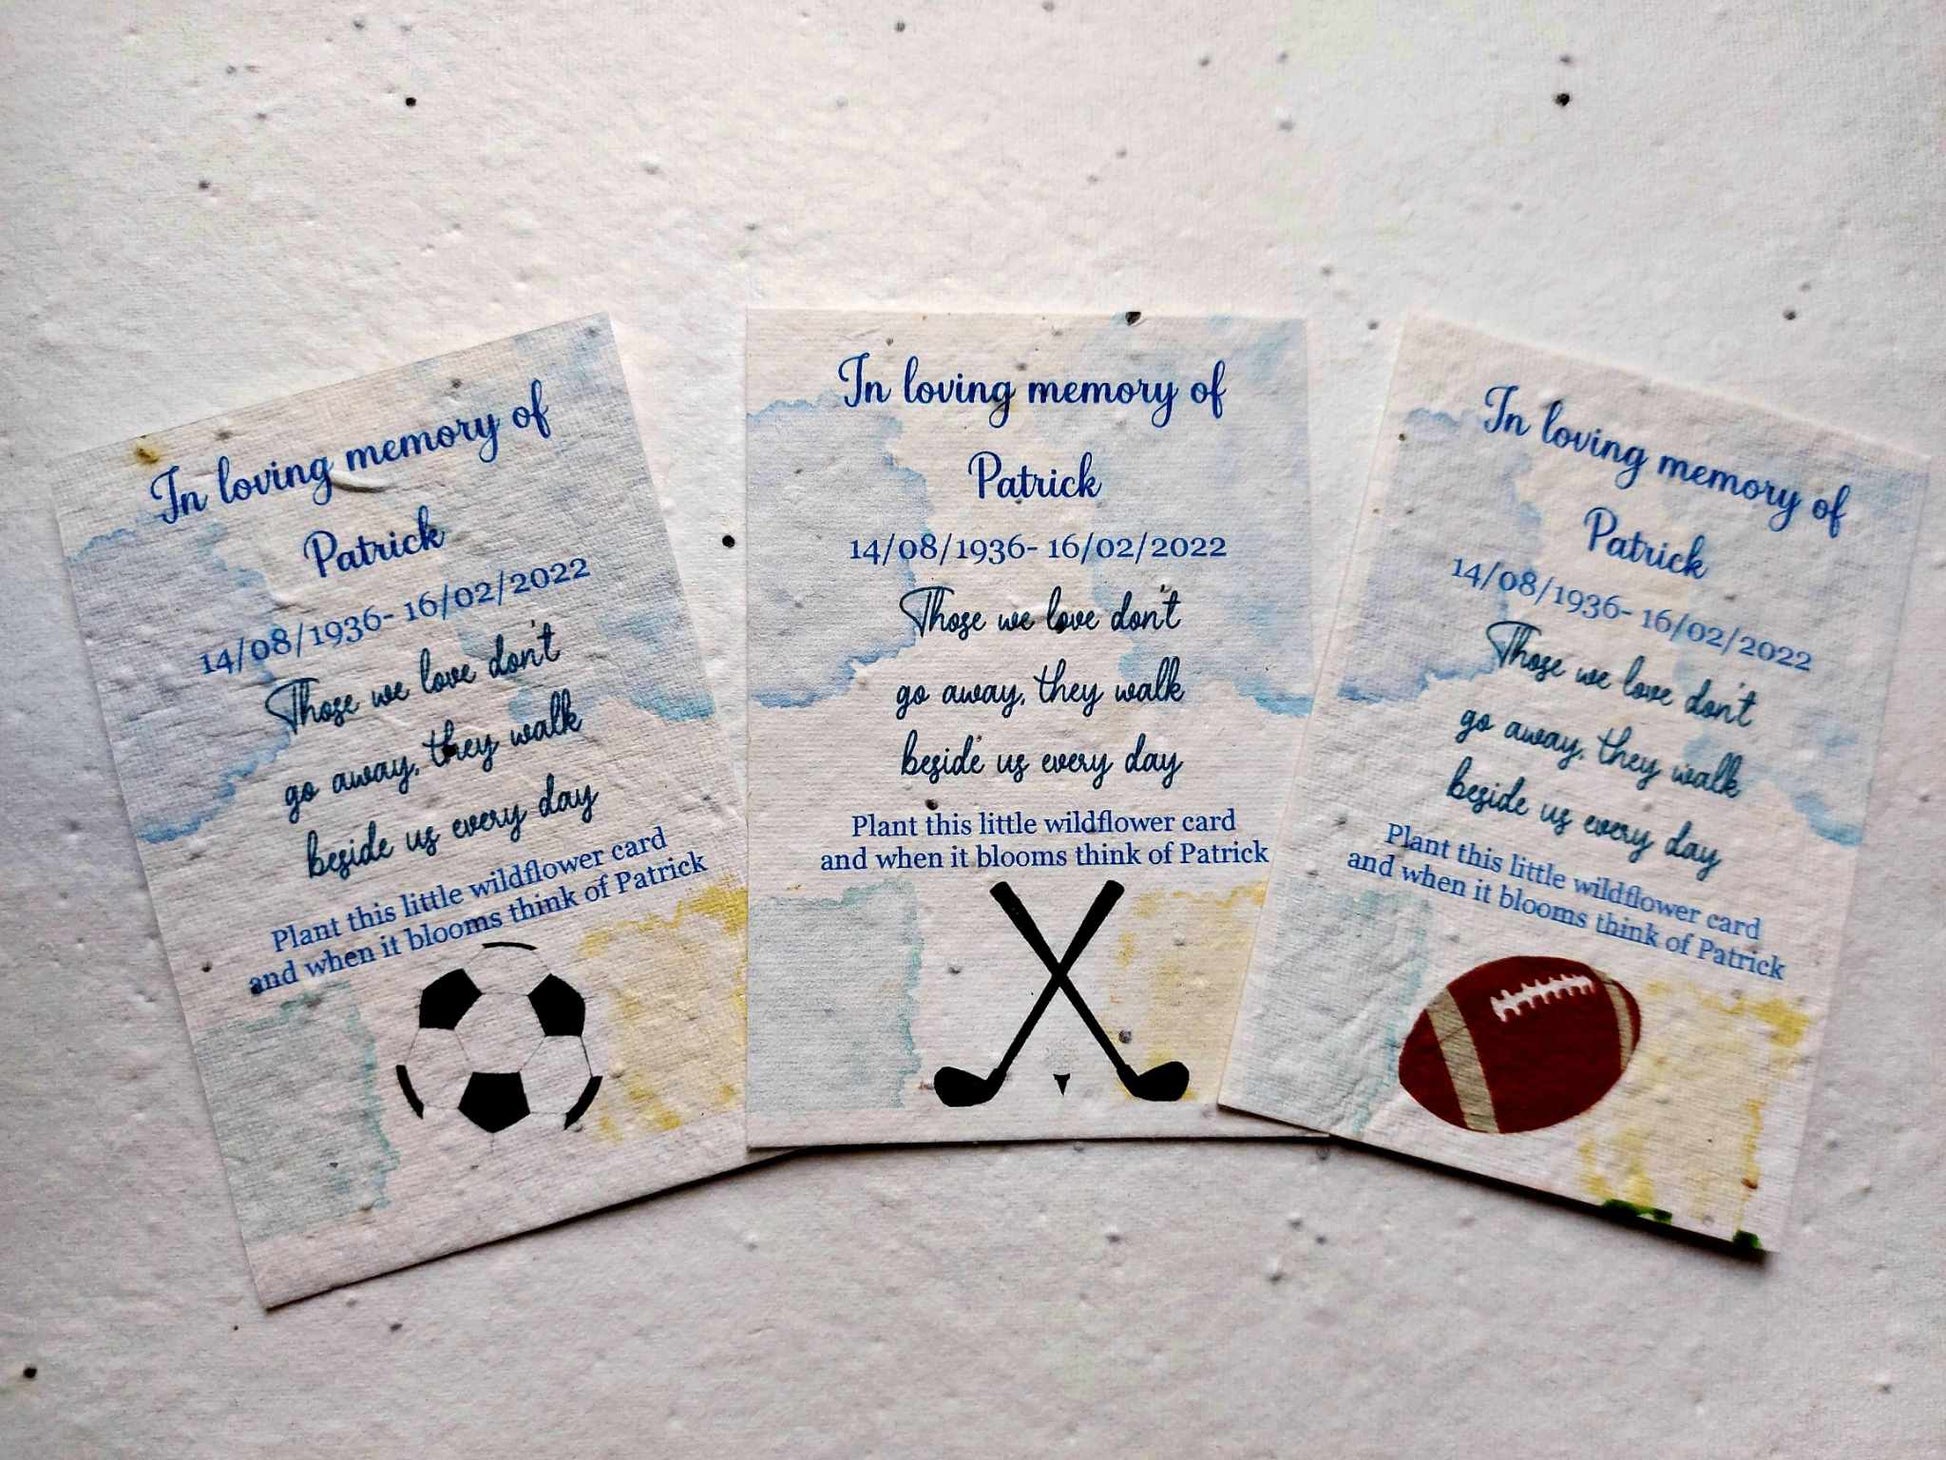 In loving memory of
Patrick
14/08/1936- 16/02/2022
Those we love don't
go away, they walk
beside us every day
Plant this little wildflower card
and when it blooms think of Patrick
In loving memory of
Patrick
14/08/1936- 16/02/2022
Those we love don't
go away, they walk
beside us every day
Plant this little wildflower card
and when it blooms think of Patrick
In loving memory of
Patrick
14/08/1936- 16/02/2022
Those we love don't
go away, they walk
beside us every day
Plant this little wildflower card
and when it blooms think of Patrick